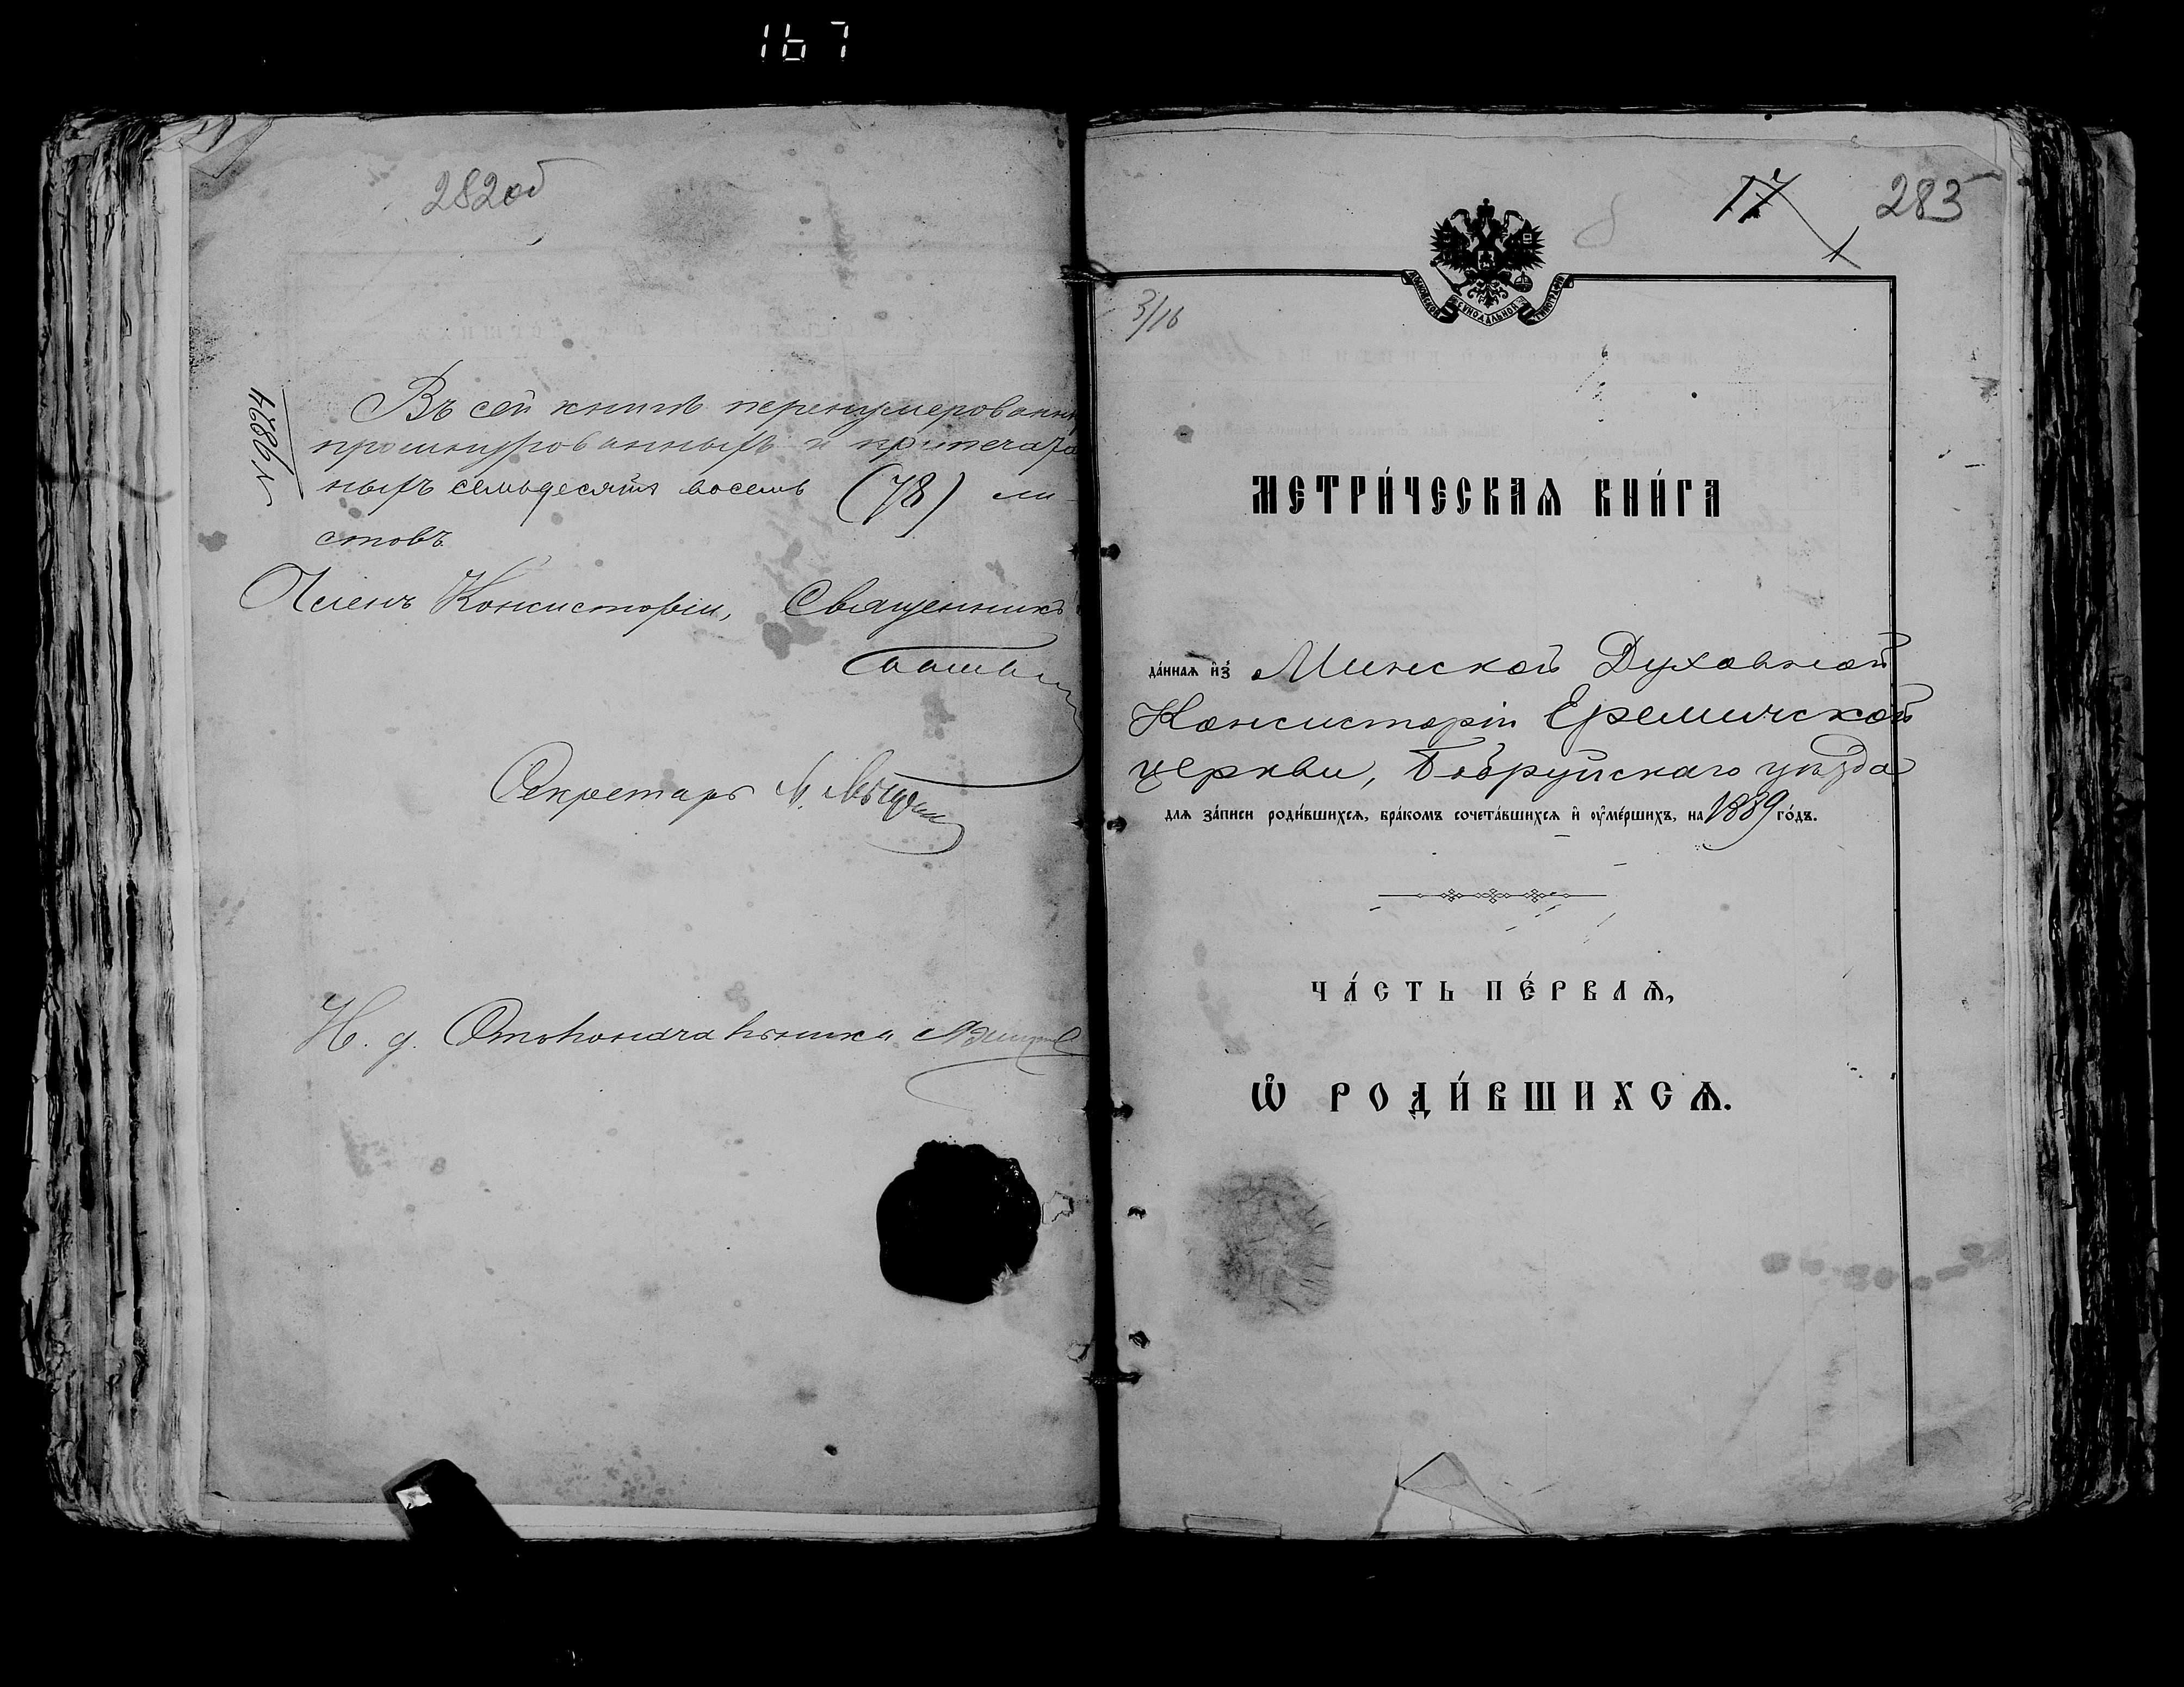 167
282об
№4684
Въ сей книгѣ перенумерованны
прошнурованныхъ и припечата
ныхъ семьдесятъ восемь (78) ли
стовъ
Членъ Консисторіи, Священникъ
Секретарь
И. д. Столоначальника
17
283
3/16
СѴНОДАЛЬНОЙ ТИПОГРАФІИ
МЕТРИ́ЧЕСКАѦ КНИ́ГА
да́ннаѧ и҆з̾ Минской Духовной
Консисторіи Еремичской
церкви, Бобруйскаго уѣзда
длѧ за́писи роди́вшихсѧ, бра́комъ сочета́вшихсѧ и҆ ᲂу҆ме́ршихъ, на 1889 го́дъ.
ЧА́СТЬ ПЕ́РВАѦ,
Ѡ҆ РОДИ́ВШИХСѦ.